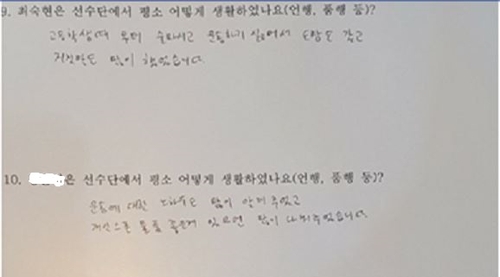 9. 최숙현은 선수단에서 평소 어떻게 생활하였나요(언행, 품행 등)?
고등학생때 부터 술마시고 운동하기 싫어해서 도망도 가고
거짓말도 많이 했었습니다.
10. 은 선수단에서 평소 어떻게 생활하였나요(언행, 품행 등)?
운동에 대한 노하우도 많이 알려주었고
개인으로 물품 좋은게 있으면 많이 나눠주었습니다.